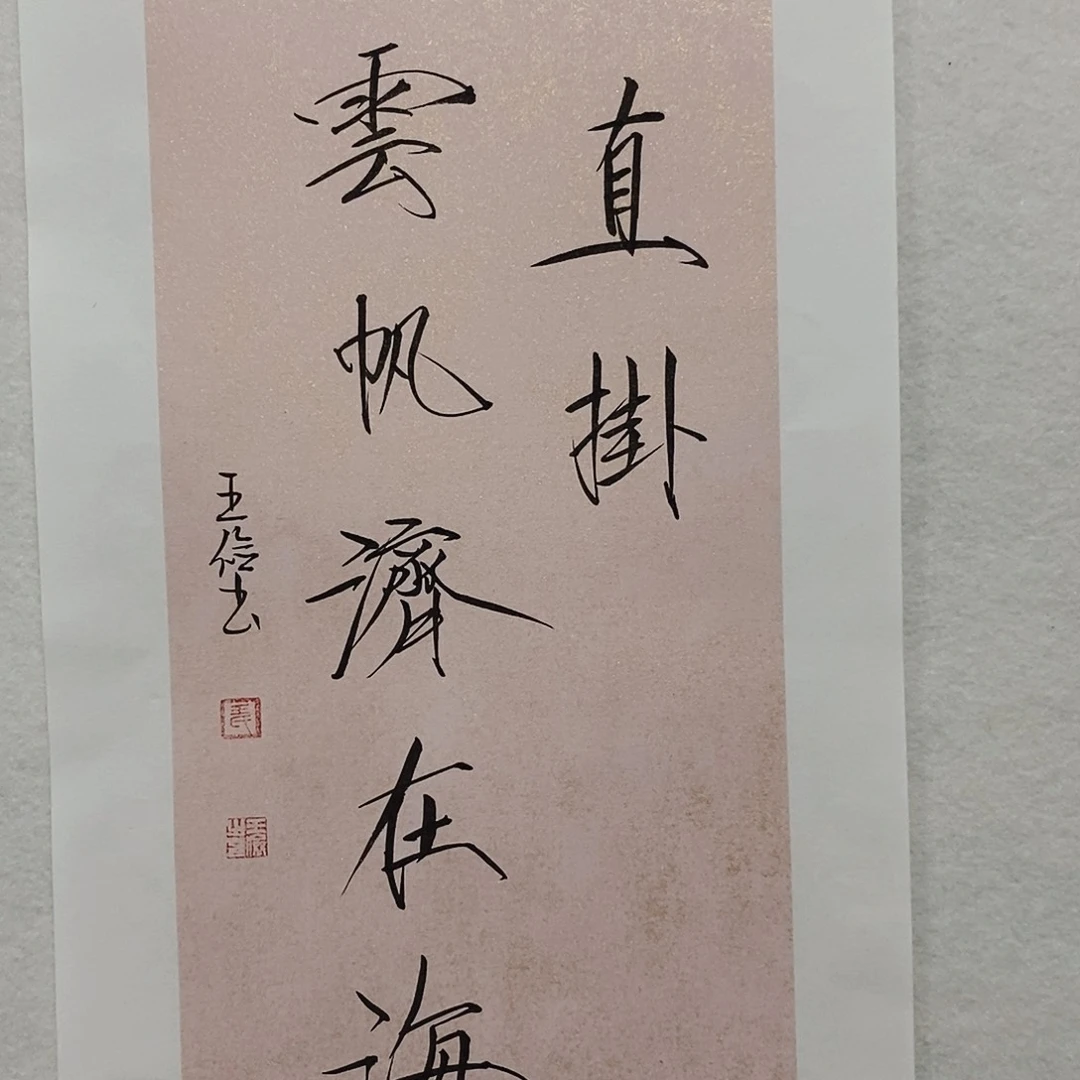 直掛
雲帆濟在海
王俭书